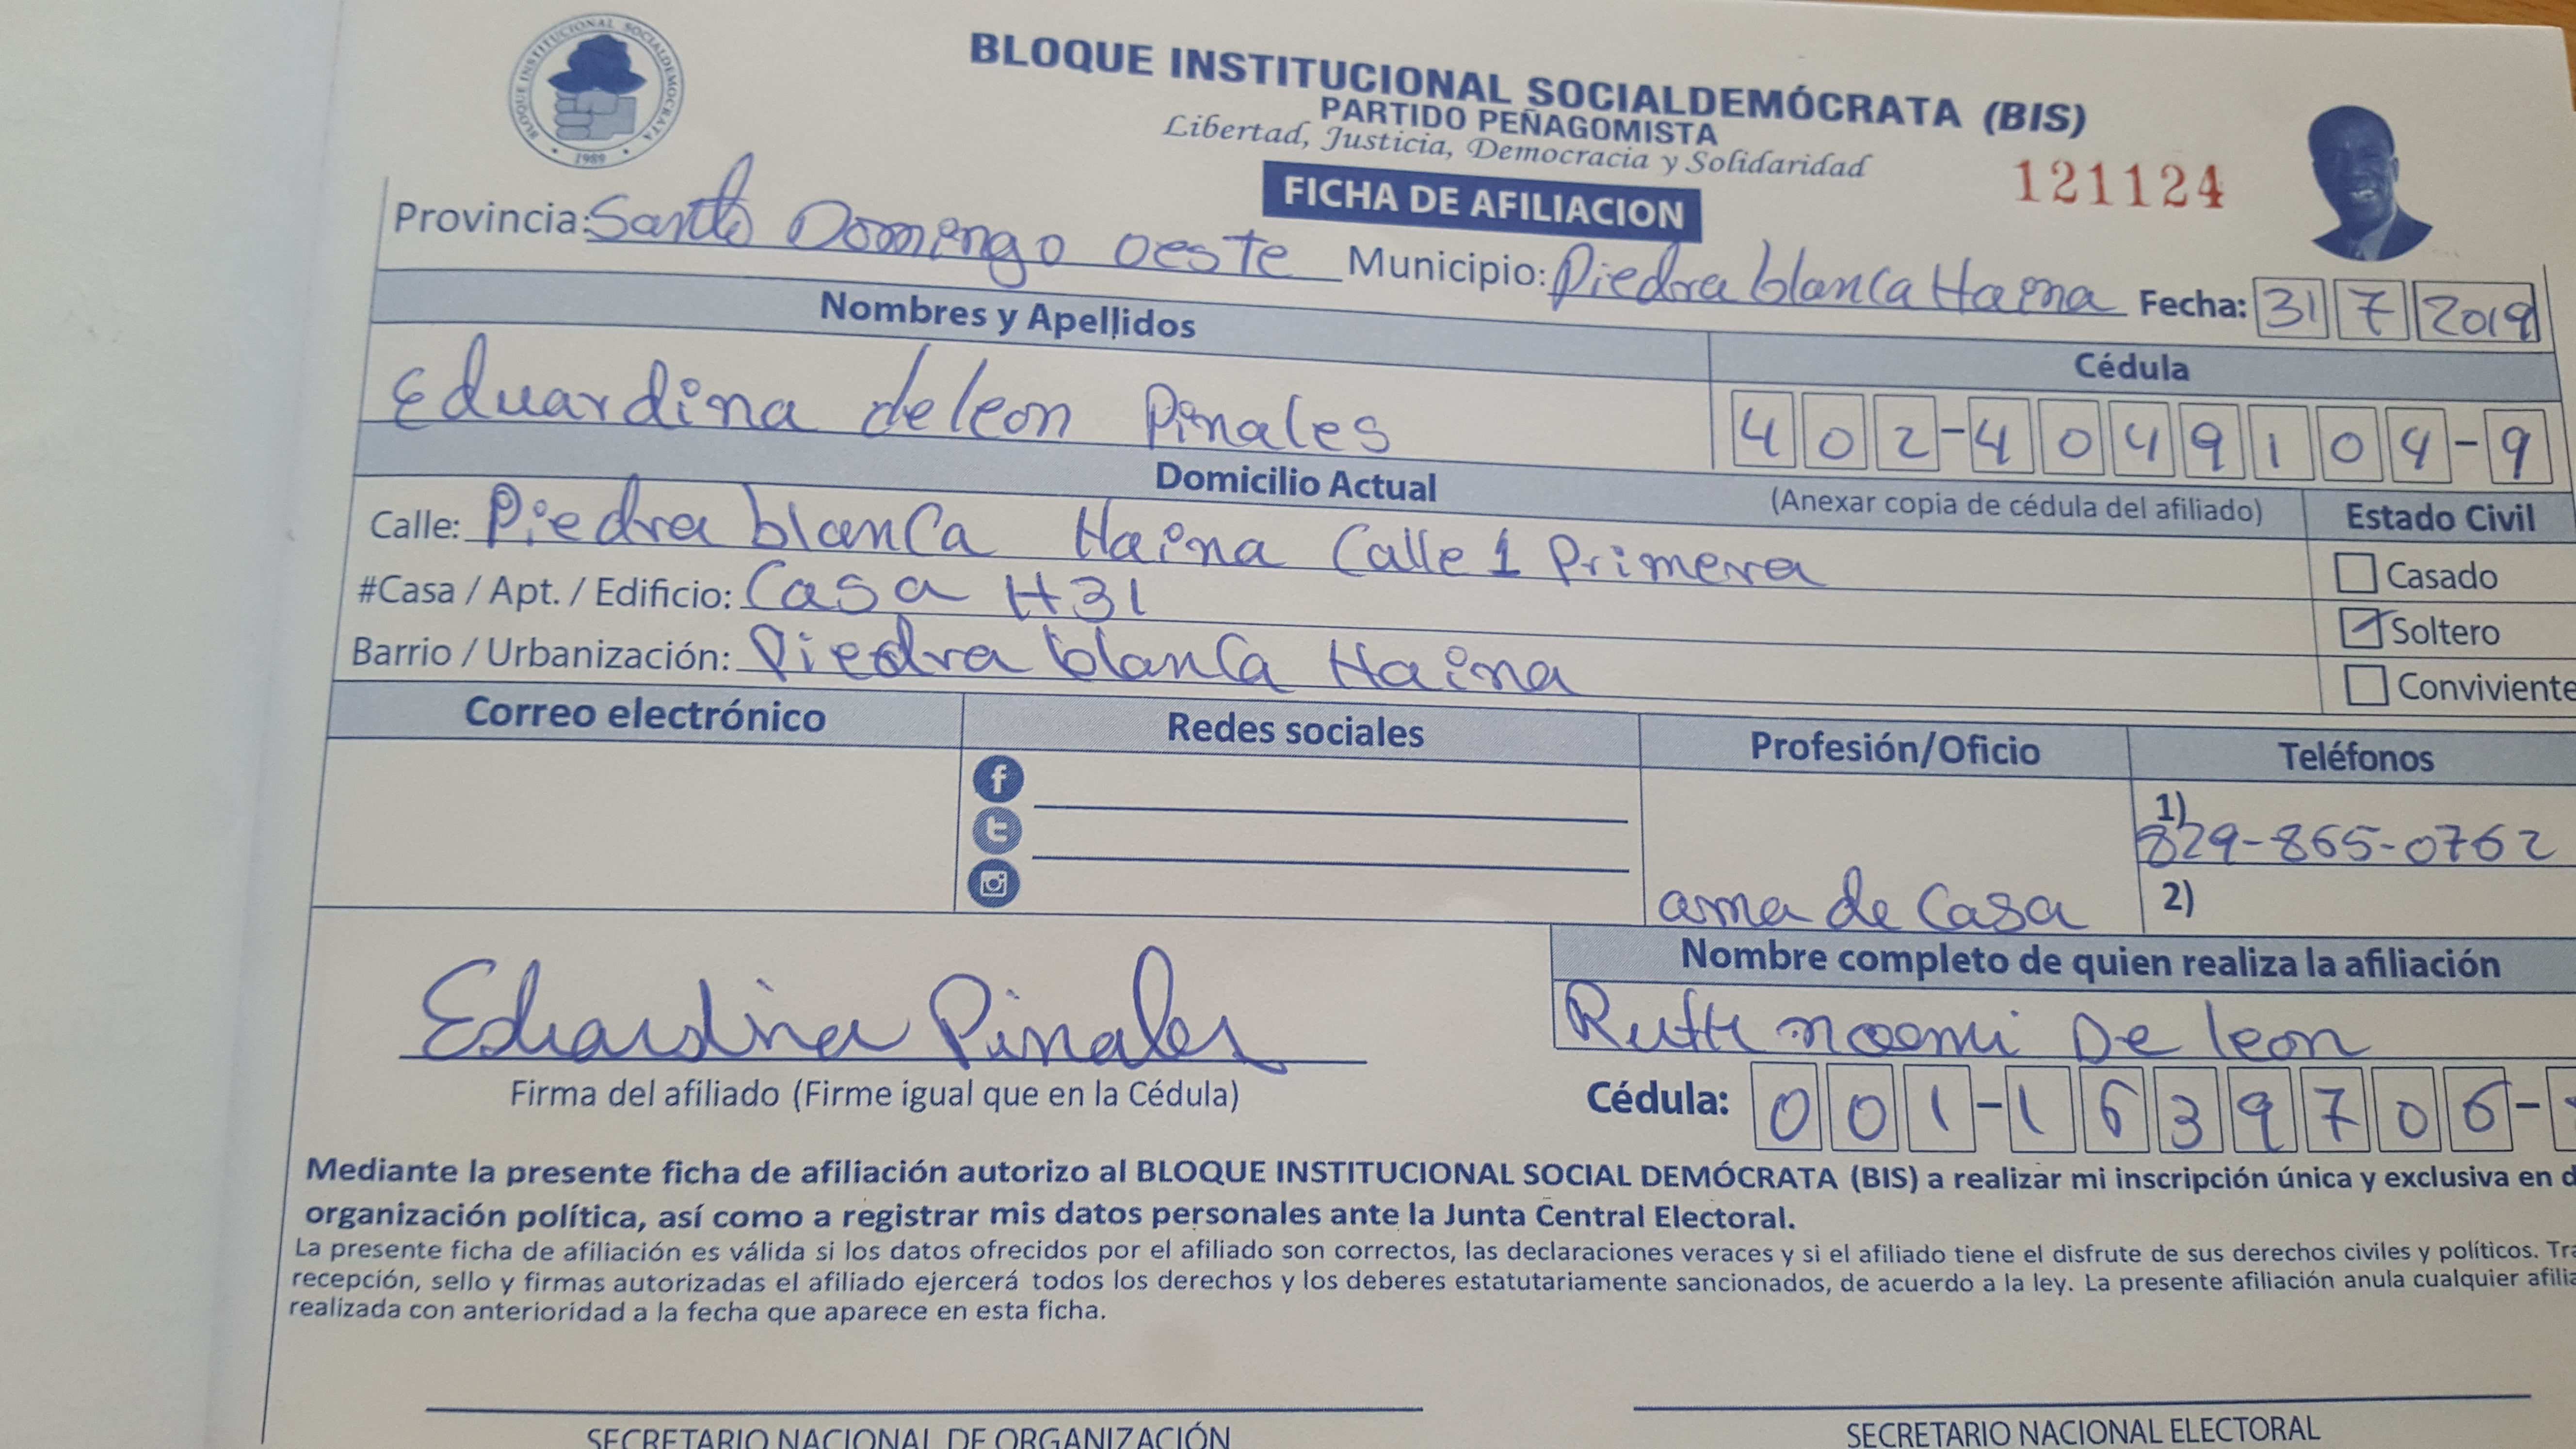 BLOQUE INSTITUCIONAL SOCIALDEMOCRATA
1989
BLOQUE INSTITUCIONAL SOCIALDEMÓCRATA (BIS)
PARTIDO PEÑAGOMISTA
Libertad, Justicia, Democracia y Solidaridad
121124
FICHA DE AFILIACION
Provincia: Santo Domingo oeste Municipio: Piedra blanca Haina Fecha: 31 7 2019
Nombres y Apellidos
Cédula
Eduardina de leon Pinales
402-4049104-9
Domicilio Actual
(Anexar copia de cédula del afiliado)
Estado Civil
Calle: Piedra blanca Haina Calle 1 Primera
Casado
#Casa / Apt. / Edificio: Casa H31
Soltero
Barrio / Urbanización: Piedra blanca Haina
Conviviente
Correo electrónico
Redes sociales
Profesión/Oficio
Teléfonos
1) 829-865-0762
2)
ama de Casa
Nombre completo de quien realiza la afiliación
Ruth noemi De leon
Eduardina Pinales
Firma del afiliado (Firme igual que en la Cédula)
Cédula: 001-1639706-
Mediante la presente ficha de afiliación autorizo al BLOQUE INSTITUCIONAL SOCIAL DEMÓCRATA (BIS) a realizar mi inscripción única y exclusiva en
organización política, así como a registrar mis datos personales ante la Junta Central Electoral.
La presente ficha de afiliación es válida si los datos ofrecidos por el afiliado son correctos, las declaraciones veraces y si el afiliado tiene el disfrute de sus derechos civiles y políticos.
recepción, sello y firmas autorizadas el afiliado ejercerá todos los derechos y los deberes estatutariamente sancionados, de acuerdo a la ley. La presente afiliación anula cualquier
realizada con anterioridad a la fecha que aparece en esta ficha.
SECRETARIO NACIONAL DE ORGANIZACIÓN
SECRETARIO NACIONAL ELECTORAL